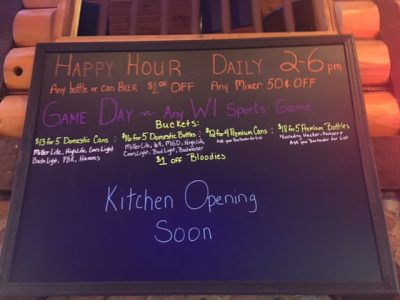 Happy Hour Daily 2-6 pm
Any bottle or can BEER $1.00 OFF Any Mixer 50¢ OFF
Game Day ~ Any WI Sports Game
Buckets:
$13 for 5 Domestic Cans : $16 for 5 Domestic Bottles : $12 for 4 Premium Cans : $18 for 5 Premium Bottles
Miller Lite, High Life, Coors Light Miller Lite, 64, MGD, High Life Ask your Bartender for List *Excluding Hacker-Pschorr*
Bush Light, PBR, Hamms Coors Light, Bud Light, Budweiser Ask your Bartender for List
$1 off Bloodies
Kitchen Opening
Soon